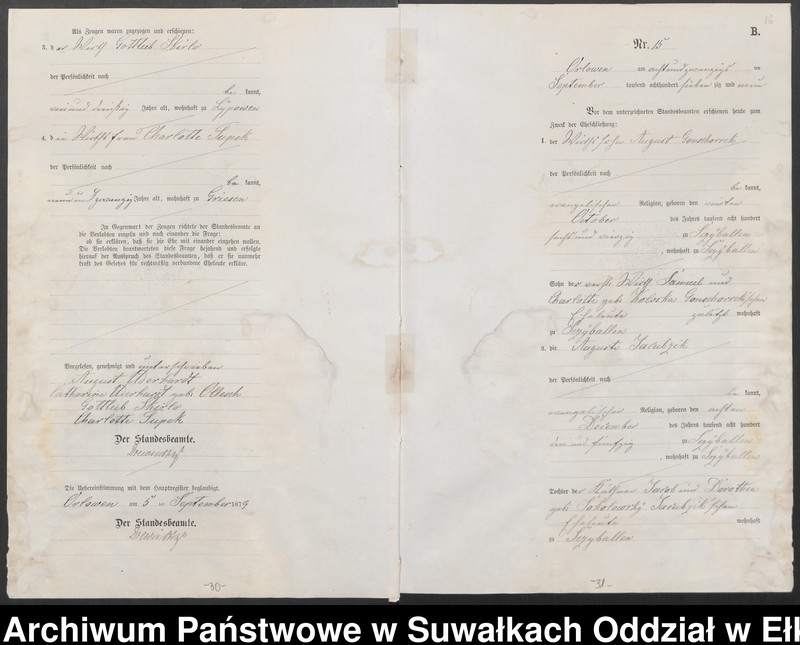 Als Zeugen waren zugezogen und erschienen:
3. der Wirth Gottlieb Skirlo
der Persönlichkeit nach
be kannt,
und dreißig Jahre alt, wohnhaft zu Lypowen
4. die Wirthsfrau Charlotte Supek
der Persönlichkeit nach
be kannt,
zwanzig Jahre alt, wohnhaft zu Griesen
In Gegenwart der Zeugen richtete der Standesbeamte an
die Verlobten einzeln und nach einander die Frage:
ob sie erklären, daß sie die Ehe mit einander eingehen wollen.
Die Verlobten beantworteten diese Frage bejahend und erfolgte
hierauf der Ausspruch des Standesbeamten, daß er sie nunmehr
kraft des Gesetzes für rechtmäßig verbundene Eheleute erkläre.
Vorgelesen, genehmigt und unterschrieben
August
Catharine geb. Olesch
Gottlieb Skirlo
Charlotte Supek
Der Standesbeamte.
Die Uebereinstimmung mit dem Hauptregister beglaubigt.
Orlowen am 5 ten September 1879
Der Standesbeamte.
-30-
B.
Nr. 15
Orlowen am achtundzwanzigs ten
September tausend achthundert sieben zig und neun
Vor dem unterzeichneten Standesbeamten erschienen heute zum
Zweck der Eheschließung:
1. der Wirthssohn August Gonschorrek
der Persönlichkeit nach
be kannt,
evangelischer Religion, geboren den
October des Jahres tausend acht hundert
sechs und vierzig zu Szyballen
, wohnhaft zu Szyballen
Sohn der Wirth Samuel und
Charlotte geb. Gonschorrek'schen
Eheleute zuletzt wohnhaft
zu Szyballen
2. die Auguste Jacubzik
der Persönlichkeit nach
be kannt,
evangelischer Religion, geboren den achten
December des Jahres tausend acht hundert
drei und fünfzig zu Szyballen
, wohnhaft zu Szyballen
Tochter der Käthner Jacob und Dorothea
geb. Sokolowsky Jacubzik'schen
Eheleute wohnhaft
zu Szyballen
-31-
Archiwum Państwowe w Suwałkach Oddział w Ełk